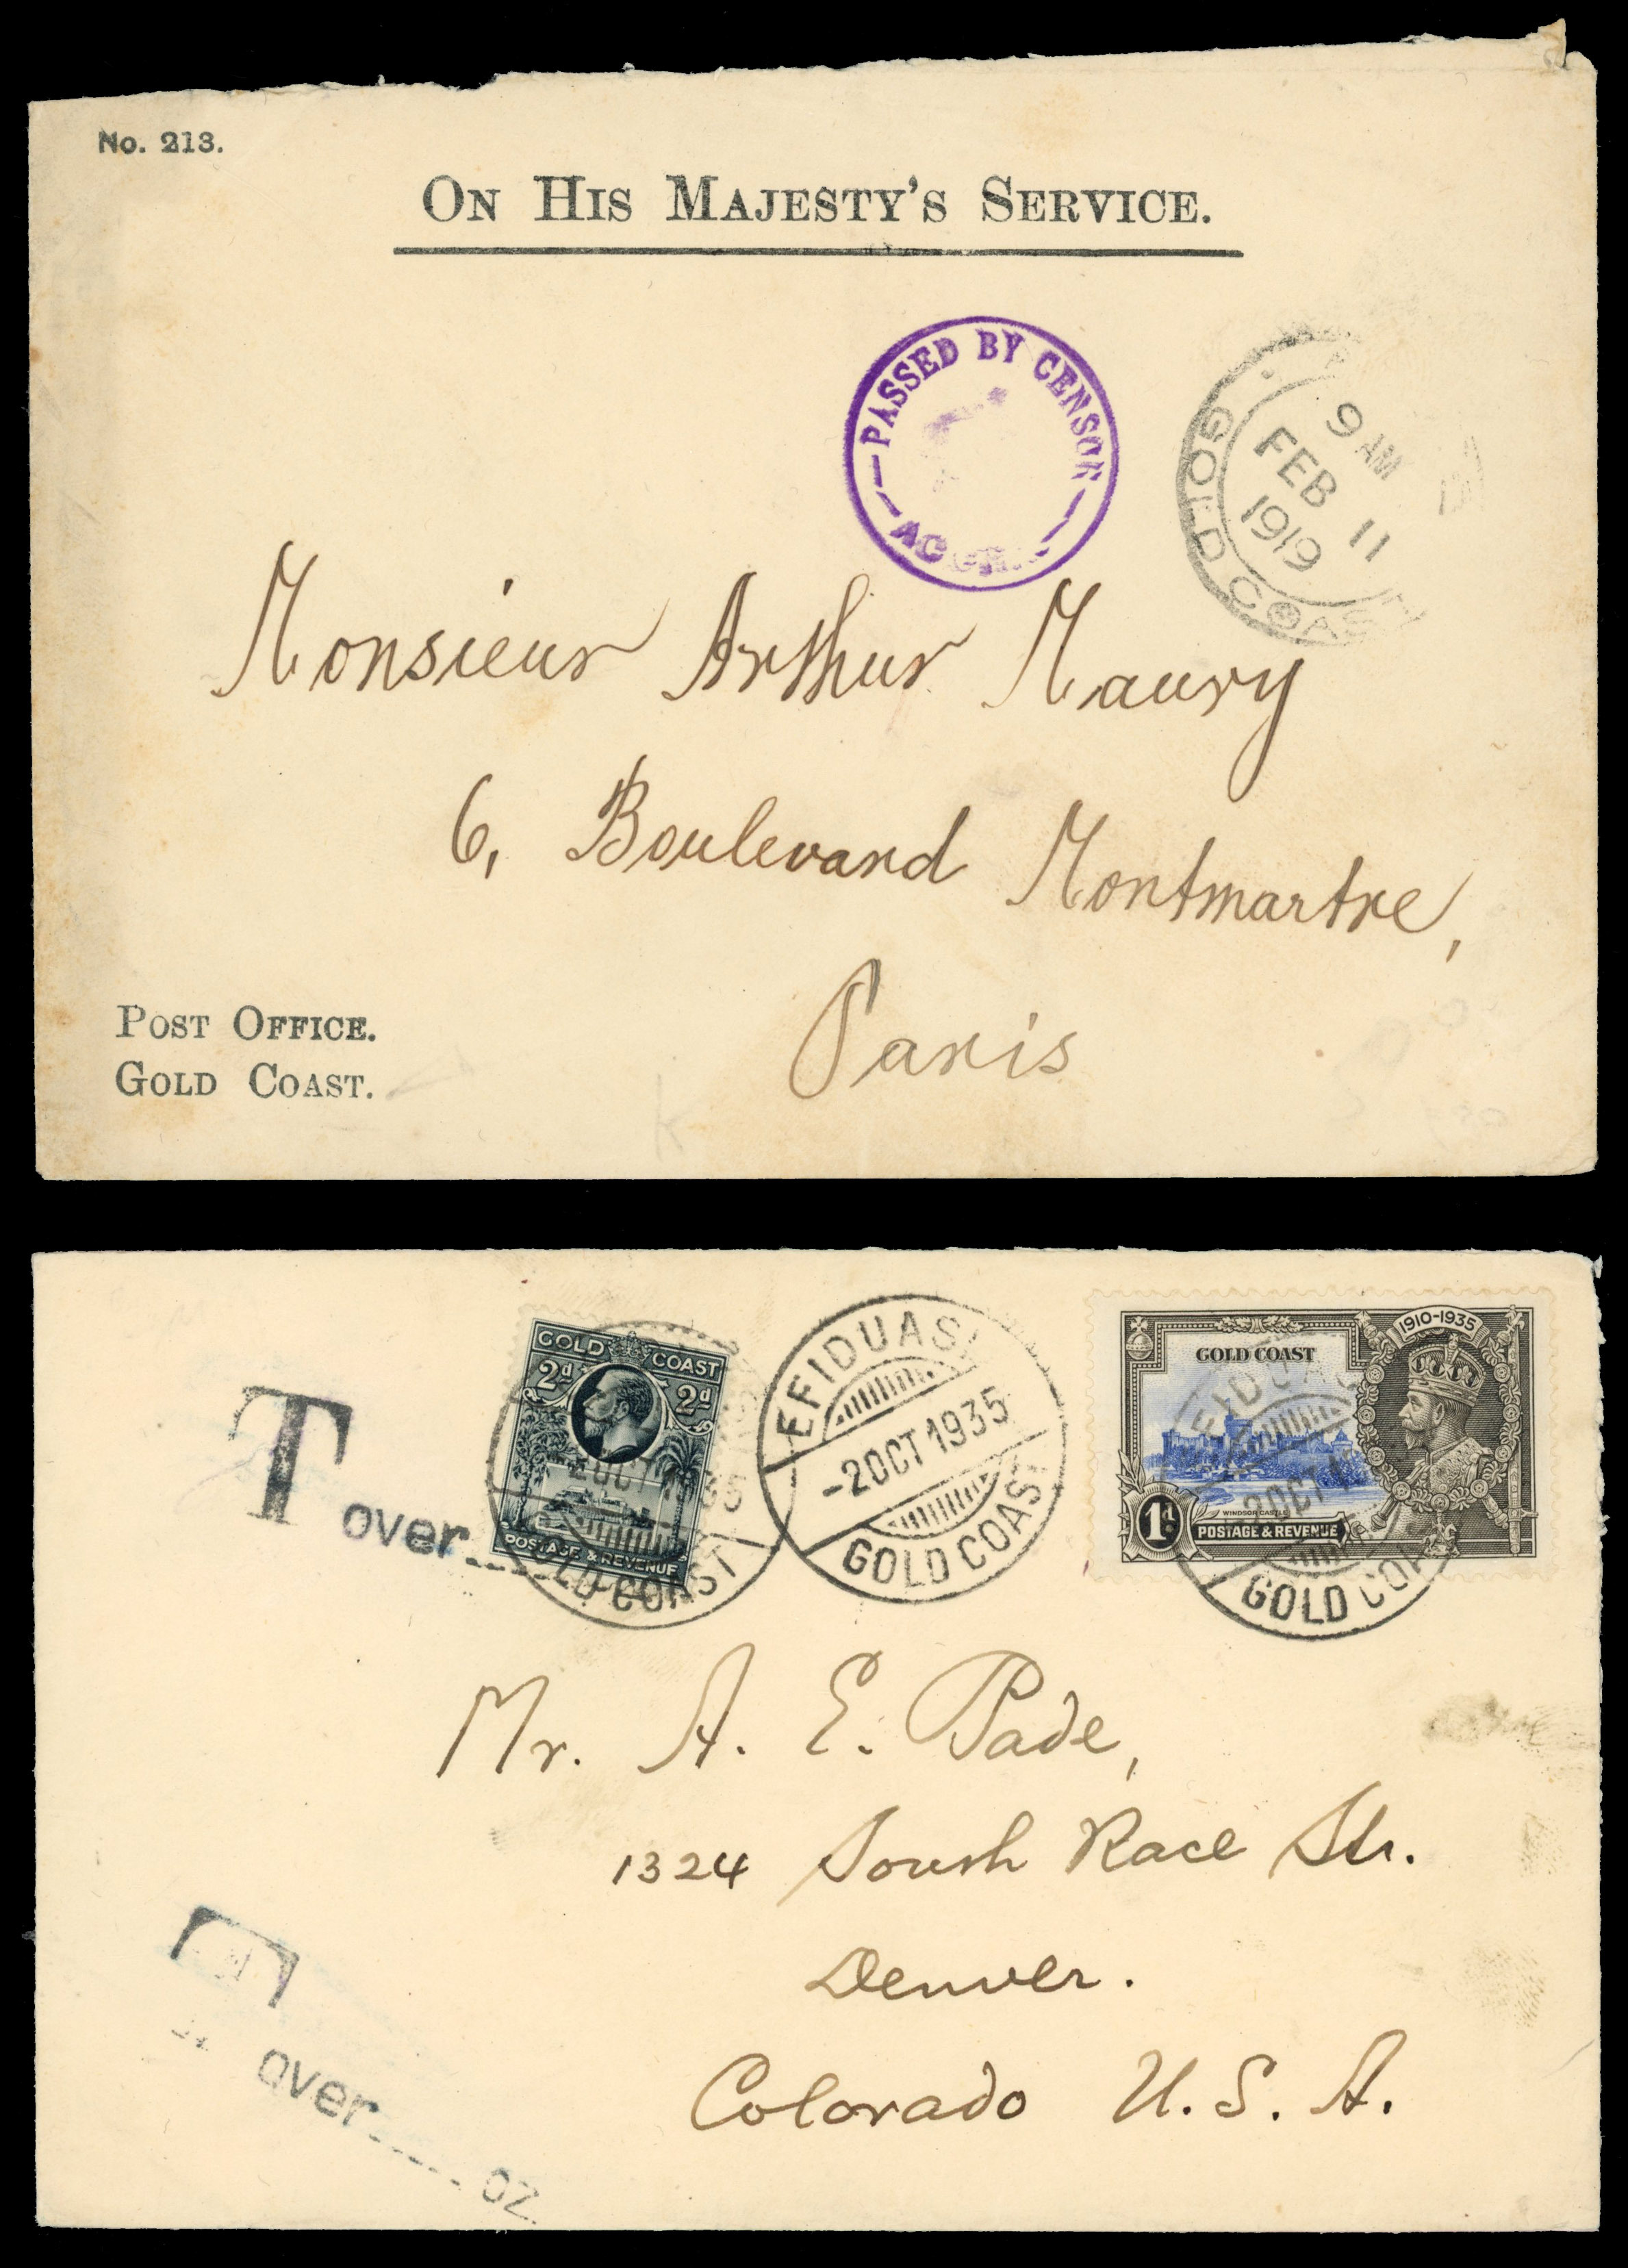 No. 213.
ON HIS MAJESTY'S SERVICE.
PASSED BY CENSOR
9 AM
FEB 11
1919
GOLD COAST
Monsieur Arthur Maury
6, Boulevard Montmartre,
Paris
POST OFFICE.
GOLD COAST.
T over
GOLD COAST
2d 2d
POSTAGE & REVENUE
GOLD COAST
EFIDUASI
-2 OCT 1935
GOLD COAST
1910-1935
GOLD COAST
WINDSOR CASTLE
1d
POSTAGE & REVENUE
2 OCT
GOLD COA
Mr. A. E. Pade,
1324 South Race Str.
Denver.
Colorado U.S.A.
over OZ.